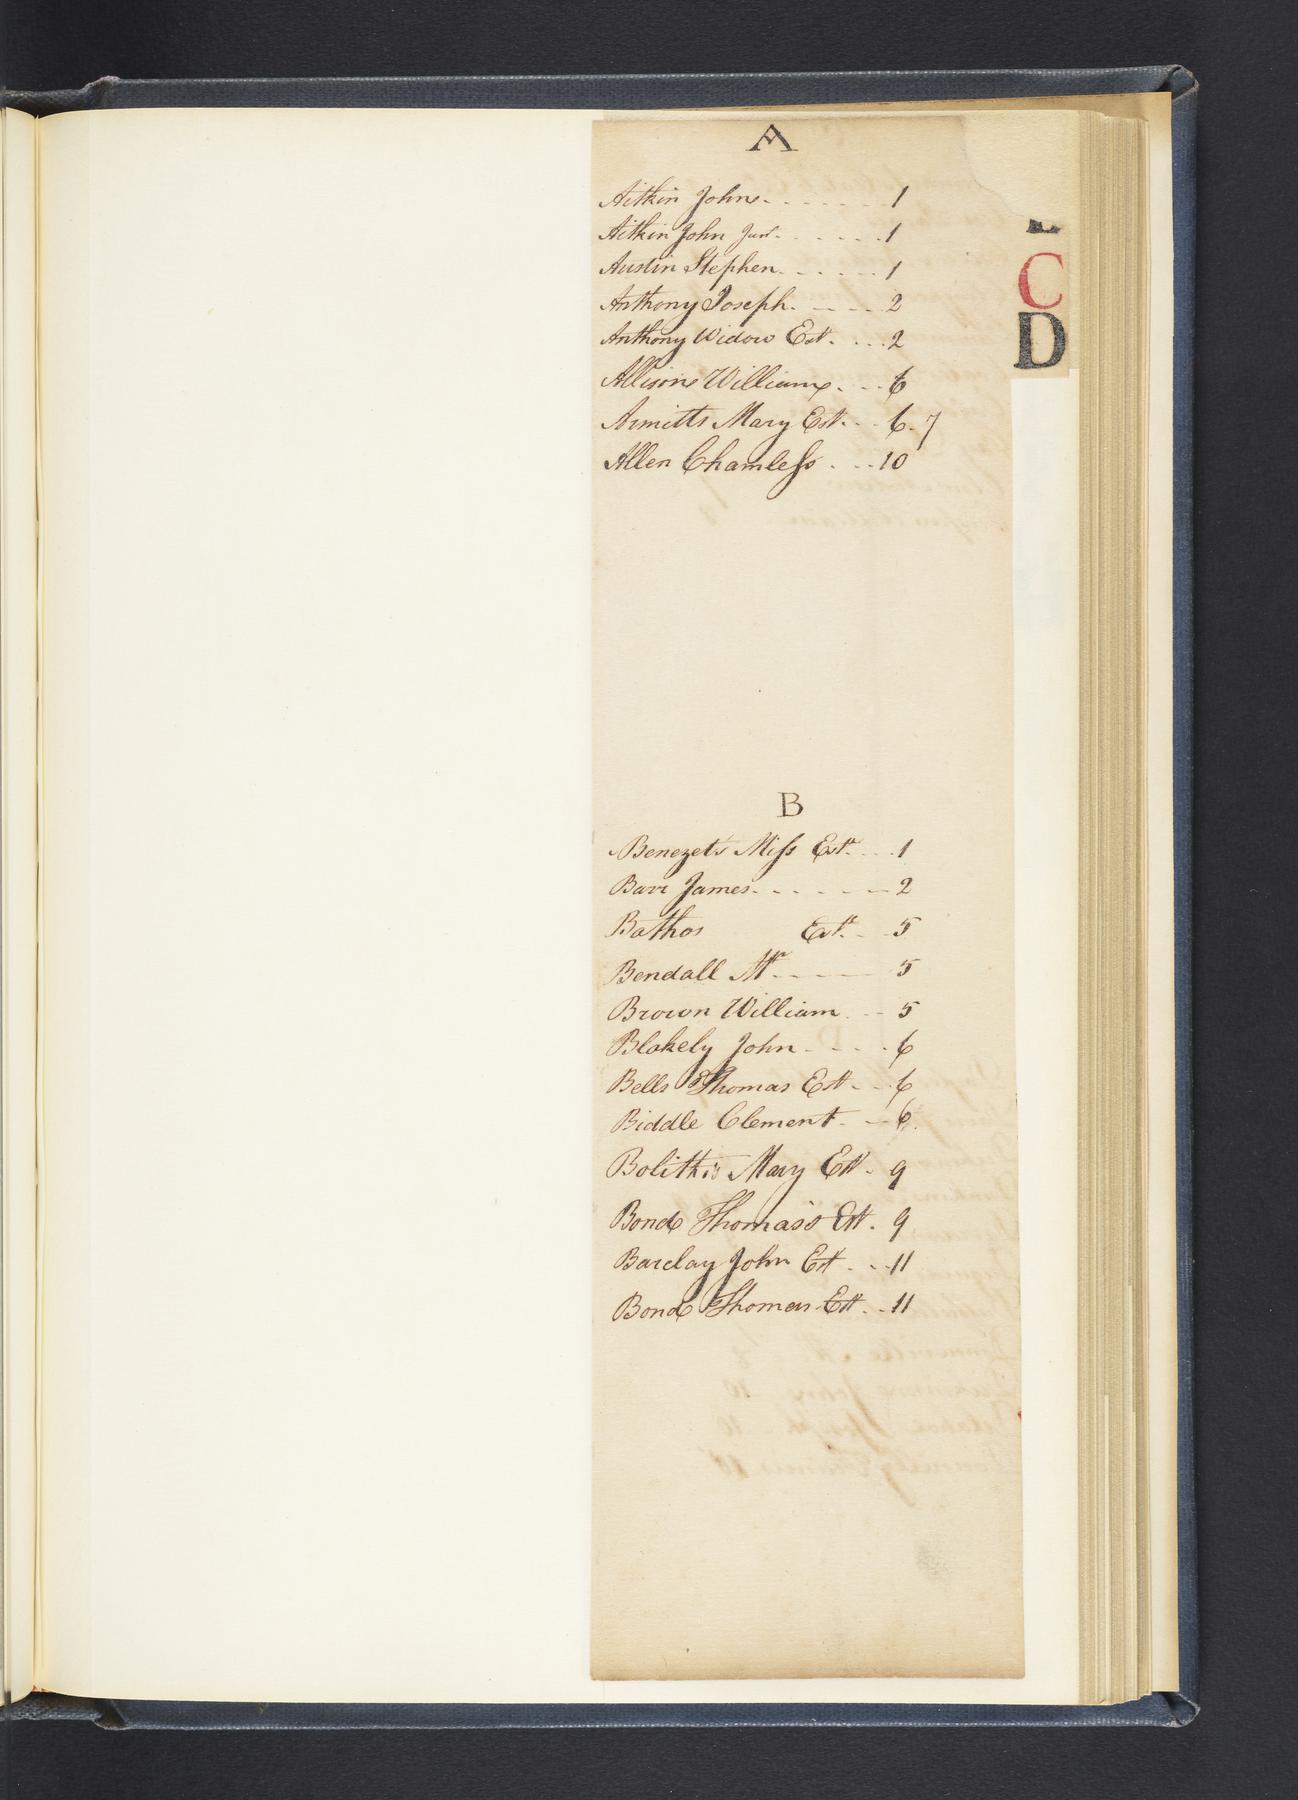 A
Aitkin John 1
Aitkin John Junr. 1
Austin Stephen 1
Anthony Joseph 2
Anthony Widow Estt. 2
Allison William 6
Armitts Mary Estt. 6. 7
Allen Chamless 10
C
D
B
Benezets Miss Estt. 1
Barr James 2
Bathos Estt. 5
Bendall Mr 5
Brown William 5
Blakely John 6
Bells Thomas Estt 6
Biddle Clement 6
Bolith's Mary Estt 9
Bond Thomas's Estt. 9
Barclay John Estt 11
Bond Thomas Estt. 11